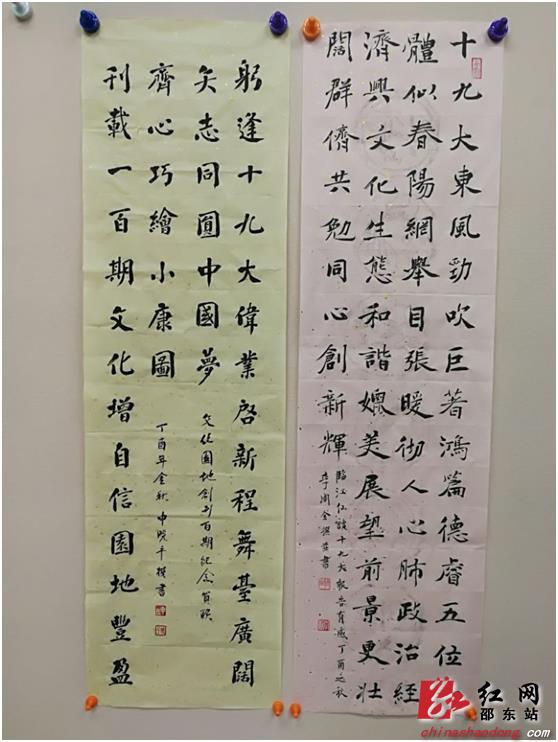 十九大東風勁吹巨著鴻篇德睿五位
體似春陽網舉目張暖彻人心肺政治経
濟興文化生態和諧媲美展望前景更壮
闊群儕共勉同心創新輝
臨江仙讀十九大報告有感丁酉之秋
全撰并書
躬逢十九大偉業啓新程舞臺廣闊
矢志同圓中國夢
文化園地創刊百期紀念賀联
齊心巧繪小康圖
丁酉年金秋申晓平撰書
刊載一百期文化增自信園地豐盈
红网
邵东站
chinashaodong.com